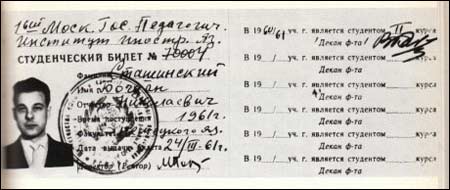 1ый Моск. Гос. Педагогич.
Институт Иностр. Яз.
СТУДЕНЧЕСКИЙ БИЛЕТ № 70004
Фамилия Сташинский
Имя Богдан
Отчество Николаевич
Время поступления 1961г.
Факультет Немецкого яз.
Дата выдачи билета 24/III-61г.
Директор (Ректор)
В 1960/61 уч. г. является студентом II курса
Декан ф-та
В 19 / уч. г. является студентом курса
Декан ф-та
В 19 / уч. г. является студентом курса
Декан ф-та
В 19 / уч. г. является студентом курса
Декан ф-та
В 19 / уч. г. является студентом курса
Декан ф-та